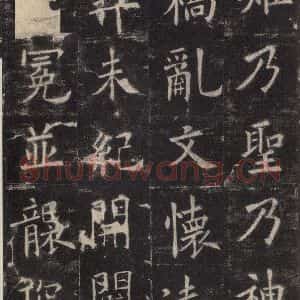 乃聖乃神
亂文懷
未紀開闢
冕並襲
Shufawang.CN